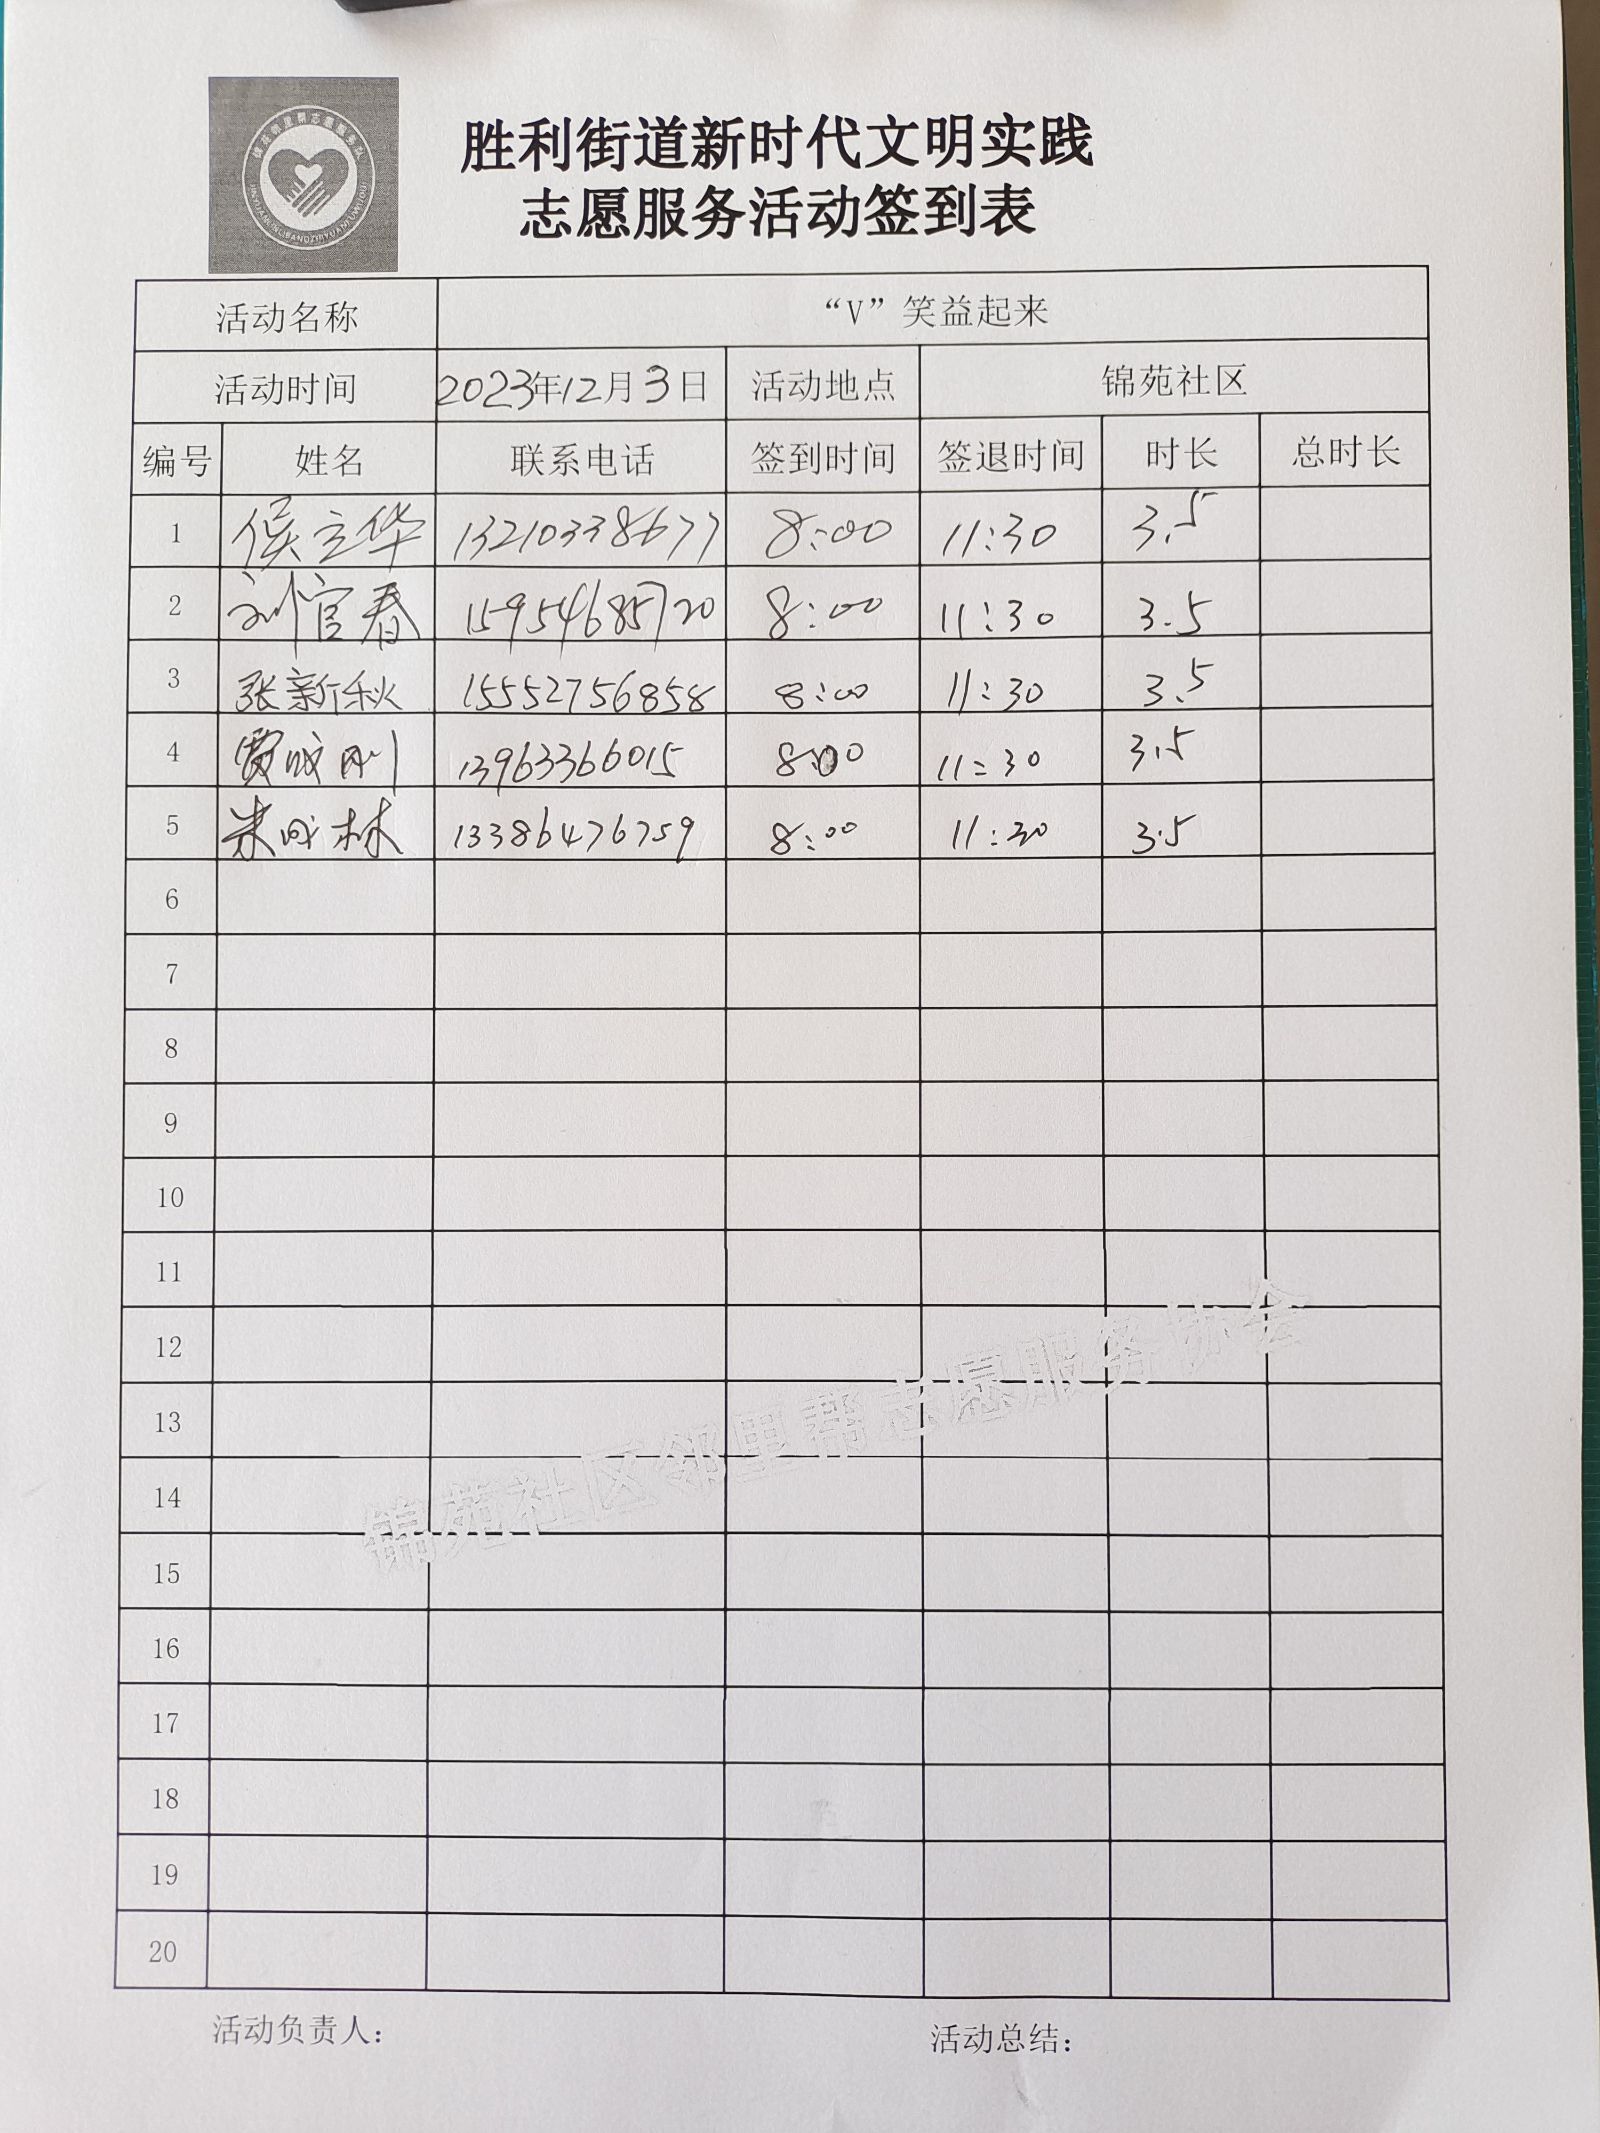 胜利街道新时代文明实践
志愿服务活动签到表
活动名称 “V”笑益起来
活动时间 2023年12月3日 活动地点 锦苑社区
编号 姓名 联系电话 签到时间 签退时间 时长 总时长
1 侯立华 13210338677 8:00 11:30 3.5
2 刘官春 15954685720 8:00 11:30 3.5
3 张新秋 15552756858 8:00 11:30 3.5
4 贾成刚 13963366015 8:00 11:30 3.5
5 米成林 13386476759 8:00 11:30 3.5
6
7
8
9
10
11
12
13
14
15
16
17
18
19
20
锦苑社区邻里帮志愿服务协会
活动负责人: 活动总结: